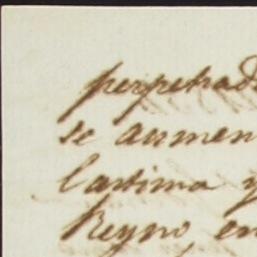 perpetrad
se aumen
lastima y
Reyno en